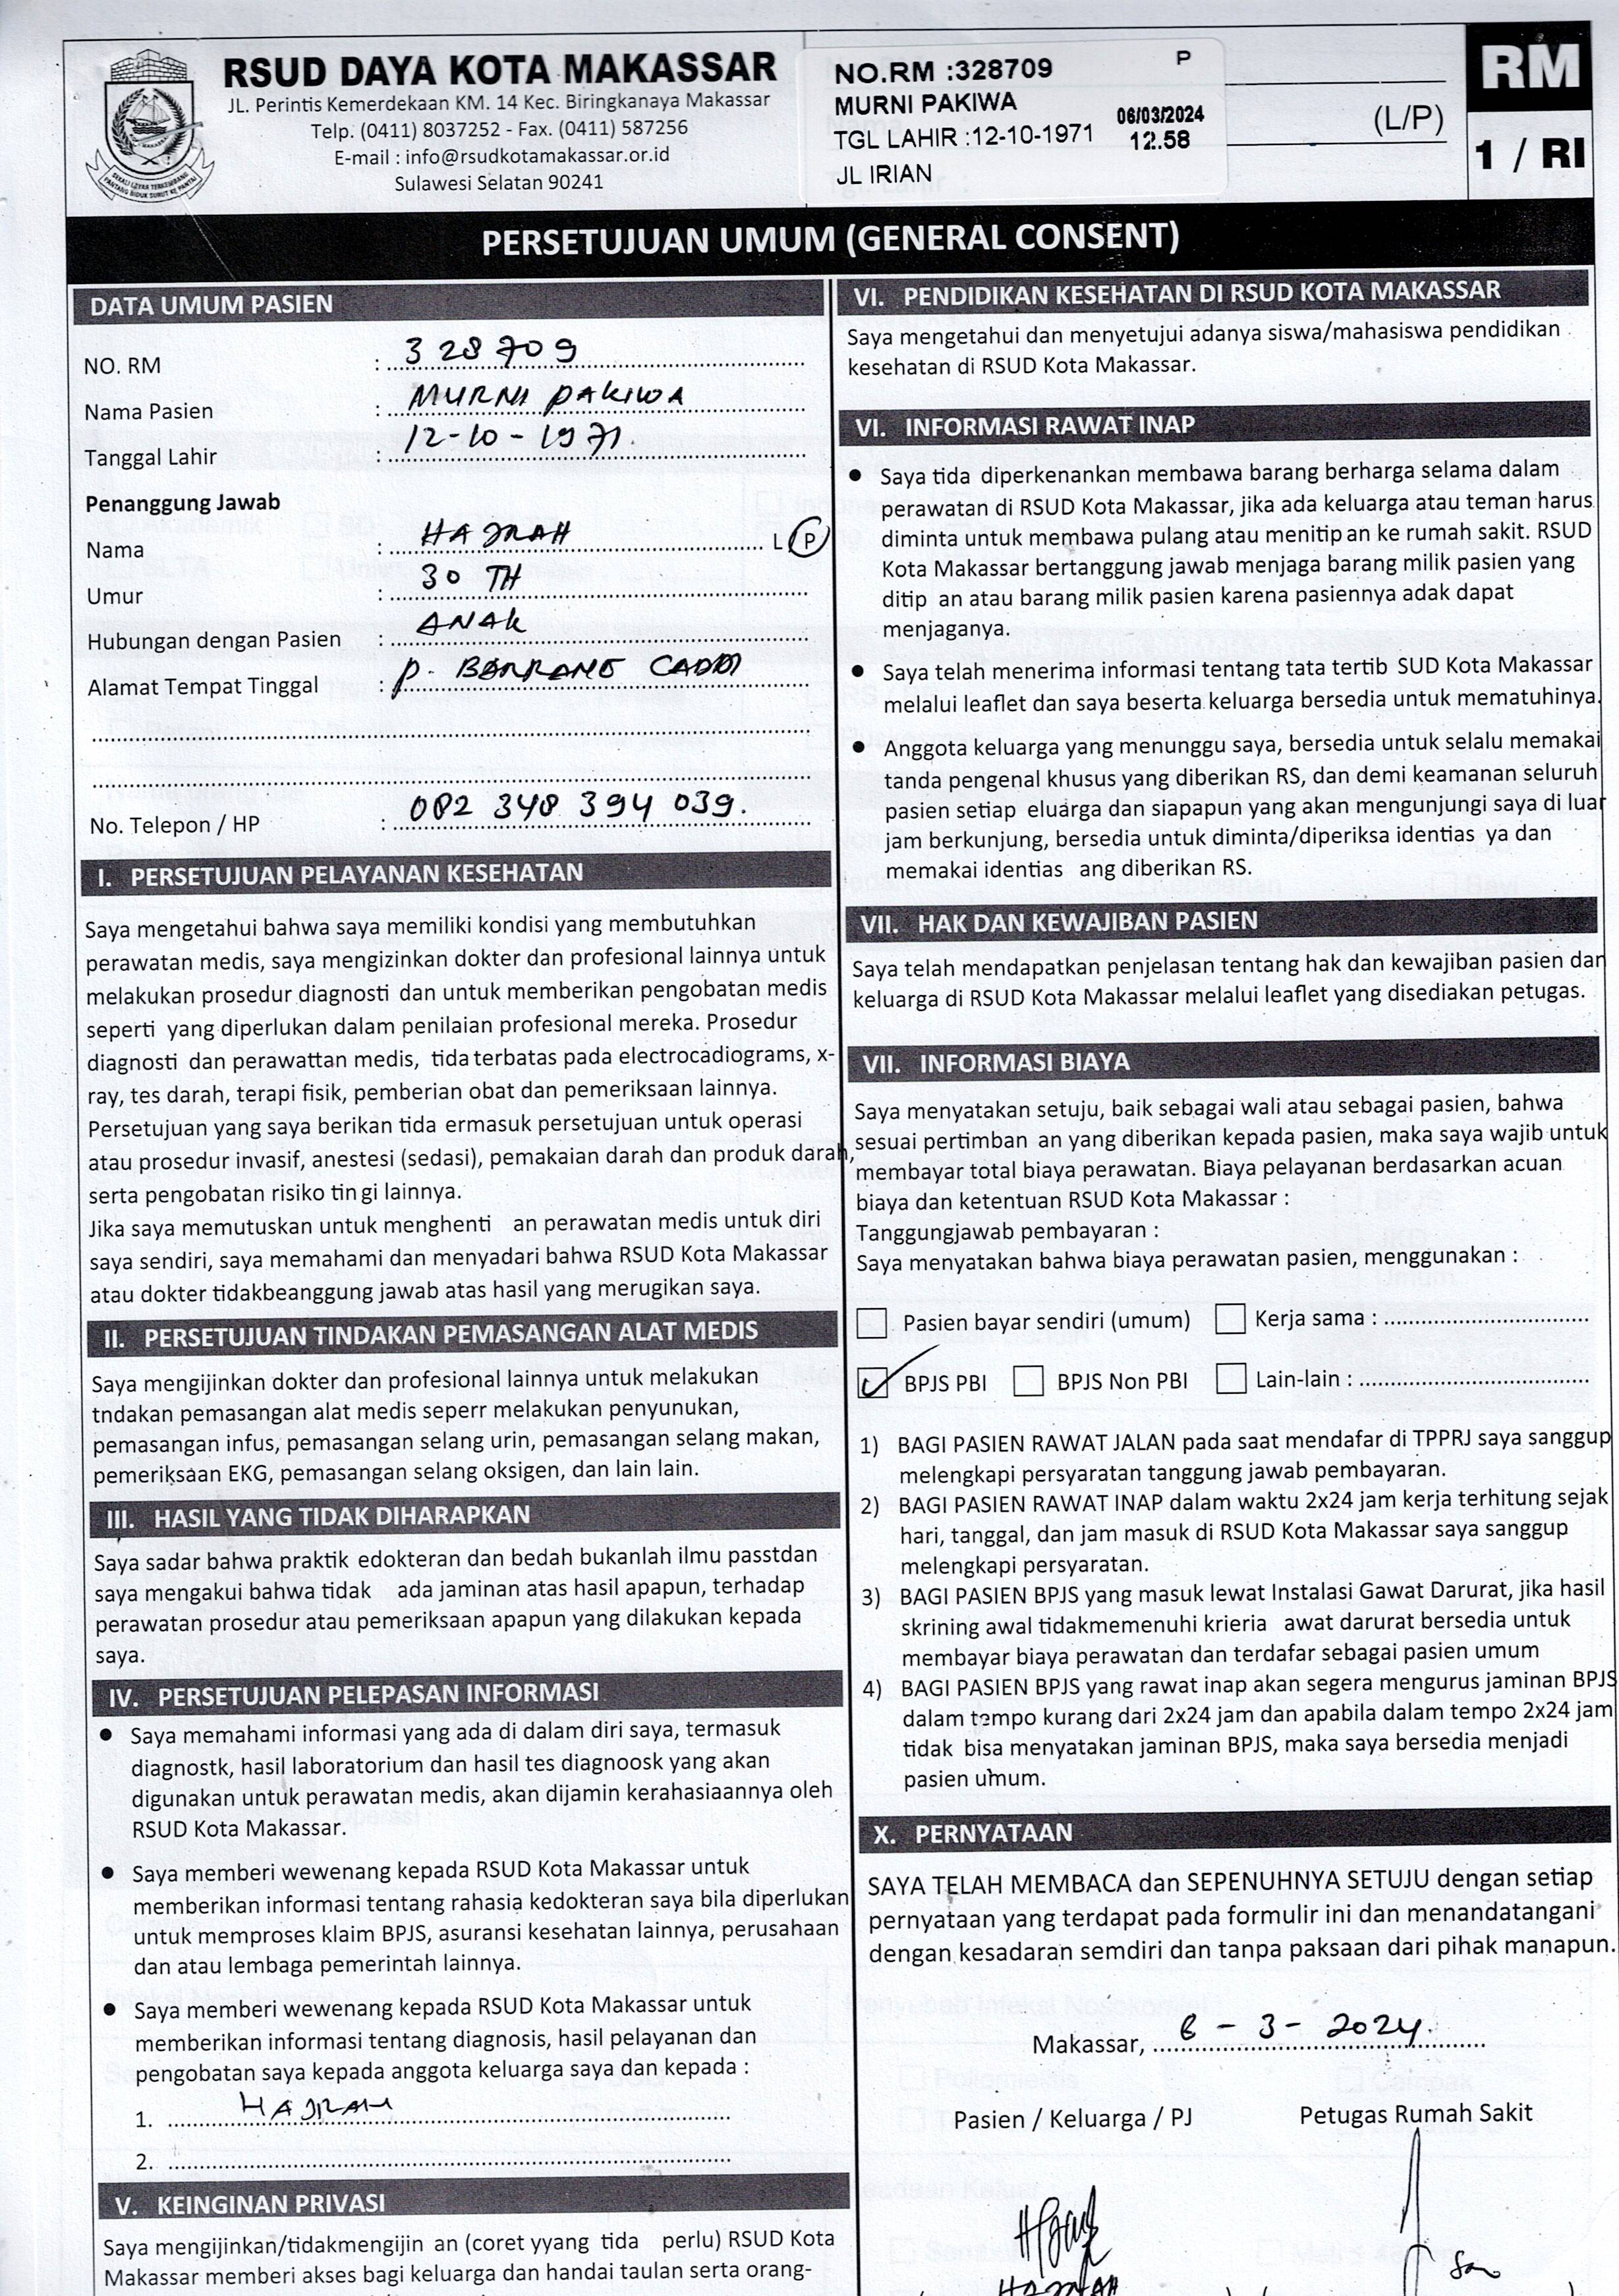 RSUD DAYA KOTA MAKASSAR
JL. Perintis Kemerdekaan KM. 14 Kec. Biringkanaya Makassar
Telp. (0411) 8037252 - Fax. (0411) 587256
E-mail : info@rsudkotamakassar.or.id
Sulawesi Selatan 90241
NO.RM :328709 P
MURNI PAKIWA
TGL LAHIR :12-10-1971
JL IRIAN
06/03/2024
12.58
(L/P)
RM
1 / RI
PERSETUJUAN UMUM (GENERAL CONSENT)
DATA UMUM PASIEN
NO. RM : 328709
Nama Pasien : MURNI PAKIWA
Tanggal Lahir : 12-10-1971.
Penanggung Jawab
Nama : HAJRAH L/P
Umur : 30 TH
Hubungan dengan Pasien : ANAK
Alamat Tempat Tinggal : P. BARRANG CADDI
No. Telepon / HP : 082 348 394 039.
I. PERSETUJUAN PELAYANAN KESEHATAN
Saya mengetahui bahwa saya memiliki kondisi yang membutuhkan
perawatan medis, saya mengizinkan dokter dan profesional lainnya untuk
melakukan prosedur diagnosti dan untuk memberikan pengobatan medis
seperti yang diperlukan dalam penilaian profesional mereka. Prosedur
diagnosti dan perawattan medis, tida terbatas pada electrocadiograms, x-
ray, tes darah, terapi fisik, pemberian obat dan pemeriksaan lainnya.
Persetujuan yang saya berikan tida ermasuk persetujuan untuk operasi
atau prosedur invasif, anestesi (sedasi), pemakaian darah dan produk darah,
serta pengobatan risiko tin gi lainnya.
Jika saya memutuskan untuk menghenti an perawatan medis untuk diri
saya sendiri, saya memahami dan menyadari bahwa RSUD Kota Makassar
atau dokter tidakbeanggung jawab atas hasil yang merugikan saya.
II. PERSETUJUAN TINDAKAN PEMASANGAN ALAT MEDIS
Saya mengijinkan dokter dan profesional lainnya untuk melakukan
tndakan pemasangan alat medis seperr melakukan penyunukan,
pemasangan infus, pemasangan selang urin, pemasangan selang makan,
pemeriksaan EKG, pemasangan selang oksigen, dan lain lain.
III. HASIL YANG TIDAK DIHARAPKAN
Saya sadar bahwa praktik edokteran dan bedah bukanlah ilmu passtdan
saya mengakui bahwa tidak ada jaminan atas hasil apapun, terhadap
perawatan prosedur atau pemeriksaan apapun yang dilakukan kepada
saya.
IV. PERSETUJUAN PELEPASAN INFORMASI
● Saya memahami informasi yang ada di dalam diri saya, termasuk
diagnostk, hasil laboratorium dan hasil tes diagnoosk yang akan
digunakan untuk perawatan medis, akan dijamin kerahasiaannya oleh
RSUD Kota Makassar.
● Saya memberi wewenang kepada RSUD Kota Makassar untuk
memberikan informasi tentang rahasia kedokteran saya bila diperlukan
untuk memproses klaim BPJS, asuransi kesehatan lainnya, perusahaan
dan atau lembaga pemerintah lainnya.
● Saya memberi wewenang kepada RSUD Kota Makassar untuk
memberikan informasi tentang diagnosis, hasil pelayanan dan
pengobatan saya kepada anggota keluarga saya dan kepada :
1. HAJRAH
2.
V. KEINGINAN PRIVASI
Saya mengijinkan/tidakmengijin an (coret yyang tida perlu) RSUD Kota
Makassar memberi akses bagi keluarga dan handai taulan serta orang-
VI. PENDIDIKAN KESEHATAN DI RSUD KOTA MAKASSAR
Saya mengetahui dan menyetujui adanya siswa/mahasiswa pendidikan
kesehatan di RSUD Kota Makassar.
VI. INFORMASI RAWAT INAP
● Saya tida diperkenankan membawa barang berharga selama dalam
perawatan di RSUD Kota Makassar, jika ada keluarga atau teman harus
diminta untuk membawa pulang atau menitip an ke rumah sakit. RSUD
Kota Makassar bertanggung jawab menjaga barang milik pasien yang
ditip an atau barang milik pasien karena pasiennya adak dapat
menjaganya.
● Saya telah menerima informasi tentang tata tertib SUD Kota Makassar
melalui leaflet dan saya beserta keluarga bersedia untuk mematuhinya.
● Anggota keluarga yang menunggu saya, bersedia untuk selalu memakai
tanda pengenal khusus yang diberikan RS, dan demi keamanan seluruh
pasien setiap eluarga dan siapapun yang akan mengunjungi saya di luar
jam berkunjung, bersedia untuk diminta/diperiksa identias ya dan
memakai identias ang diberikan RS.
VII. HAK DAN KEWAJIBAN PASIEN
Saya telah mendapatkan penjelasan tentang hak dan kewajiban pasien dan
keluarga di RSUD Kota Makassar melalui leaflet yang disediakan petugas.
VII. INFORMASI BIAYA
Saya menyatakan setuju, baik sebagai wali atau sebagai pasien, bahwa
sesuai pertimban an yang diberikan kepada pasien, maka saya wajib untuk
membayar total biaya perawatan. Biaya pelayanan berdasarkan acuan
biaya dan ketentuan RSUD Kota Makassar :
Tanggungjawab pembayaran :
Saya menyatakan bahwa biaya perawatan pasien, menggunakan :
Pasien bayar sendiri (umum) Kerja sama :
BPJS PBI BPJS Non PBI Lain-lain :
1) BAGI PASIEN RAWAT JALAN pada saat mendafar di TPPRJ saya sanggup
melengkapi persyaratan tanggung jawab pembayaran.
2) BAGI PASIEN RAWAT INAP dalam waktu 2x24 jam kerja terhitung sejak
hari, tanggal, dan jam masuk di RSUD Kota Makassar saya sanggup
melengkapi persyaratan.
3) BAGI PASIEN BPJS yang masuk lewat Instalasi Gawat Darurat, jika hasil
skrining awal tidakmemenuhi krieria awat darurat bersedia untuk
membayar biaya perawatan dan terdafar sebagai pasien umum
4) BAGI PASIEN BPJS yang rawat inap akan segera mengurus jaminan BPJS
dalam tempo kurang dari 2x24 jam dan apabila dalam tempo 2x24 jam
tidak bisa menyatakan jaminan BPJS, maka saya bersedia menjadi
pasien umum.
X. PERNYATAAN
SAYA TELAH MEMBACA dan SEPENUHNYA SETUJU dengan setiap
pernyataan yang terdapat pada formulir ini dan menandatangani
dengan kesadaran semdiri dan tanpa paksaan dari pihak manapun.
Makassar, 6 - 3 - 2024.
Pasien / Keluarga / PJ Petugas Rumah Sakit
HAJRAH